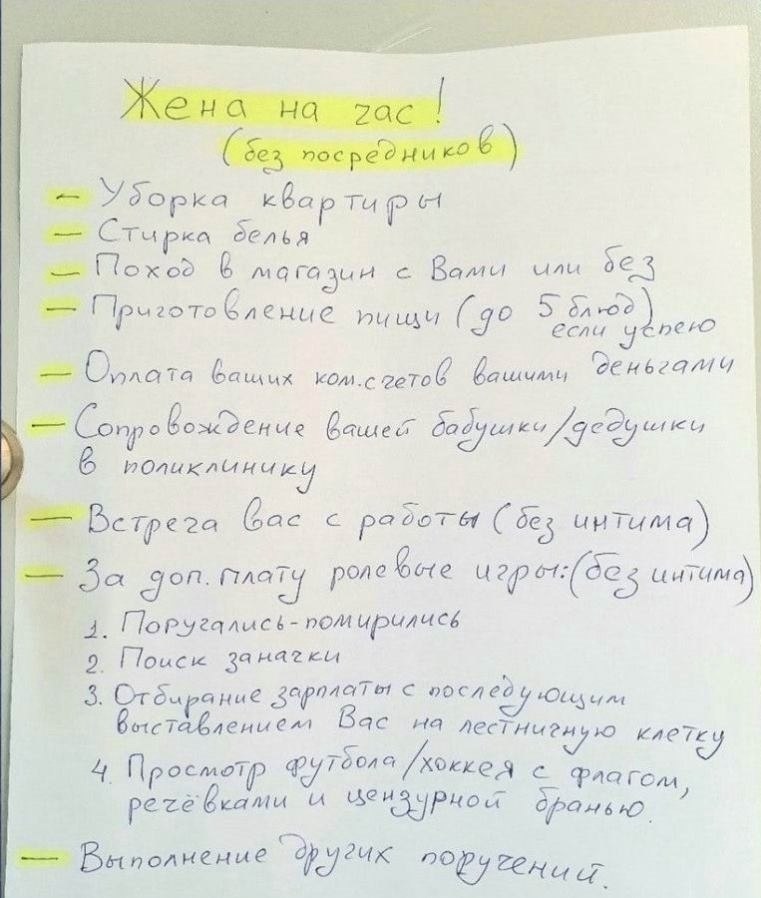 Жена на час!
(без посредников)
— Уборка квартиры
— Стирка белья
— Поход в магазин с Вами или без
— Приготовление пищи (до 5 блюд)
если успею
— Оплата ваших ком.счетов вашими деньгами
— Сопровождение вашей бабушки/дедушки
в поликлинику
— Встреча вас с работы (без интима)
— За доп. плату ролевые игры: (без интима)
1. Поругались-помирились
2. Поиск заначки
3. Отбирание зарплаты с последующим
выставлением Вас на лестничную клетку
4. Просмотр футбола/хоккея с флагом,
речёвками и цензурной бранью.
— Выполнение других поручений.